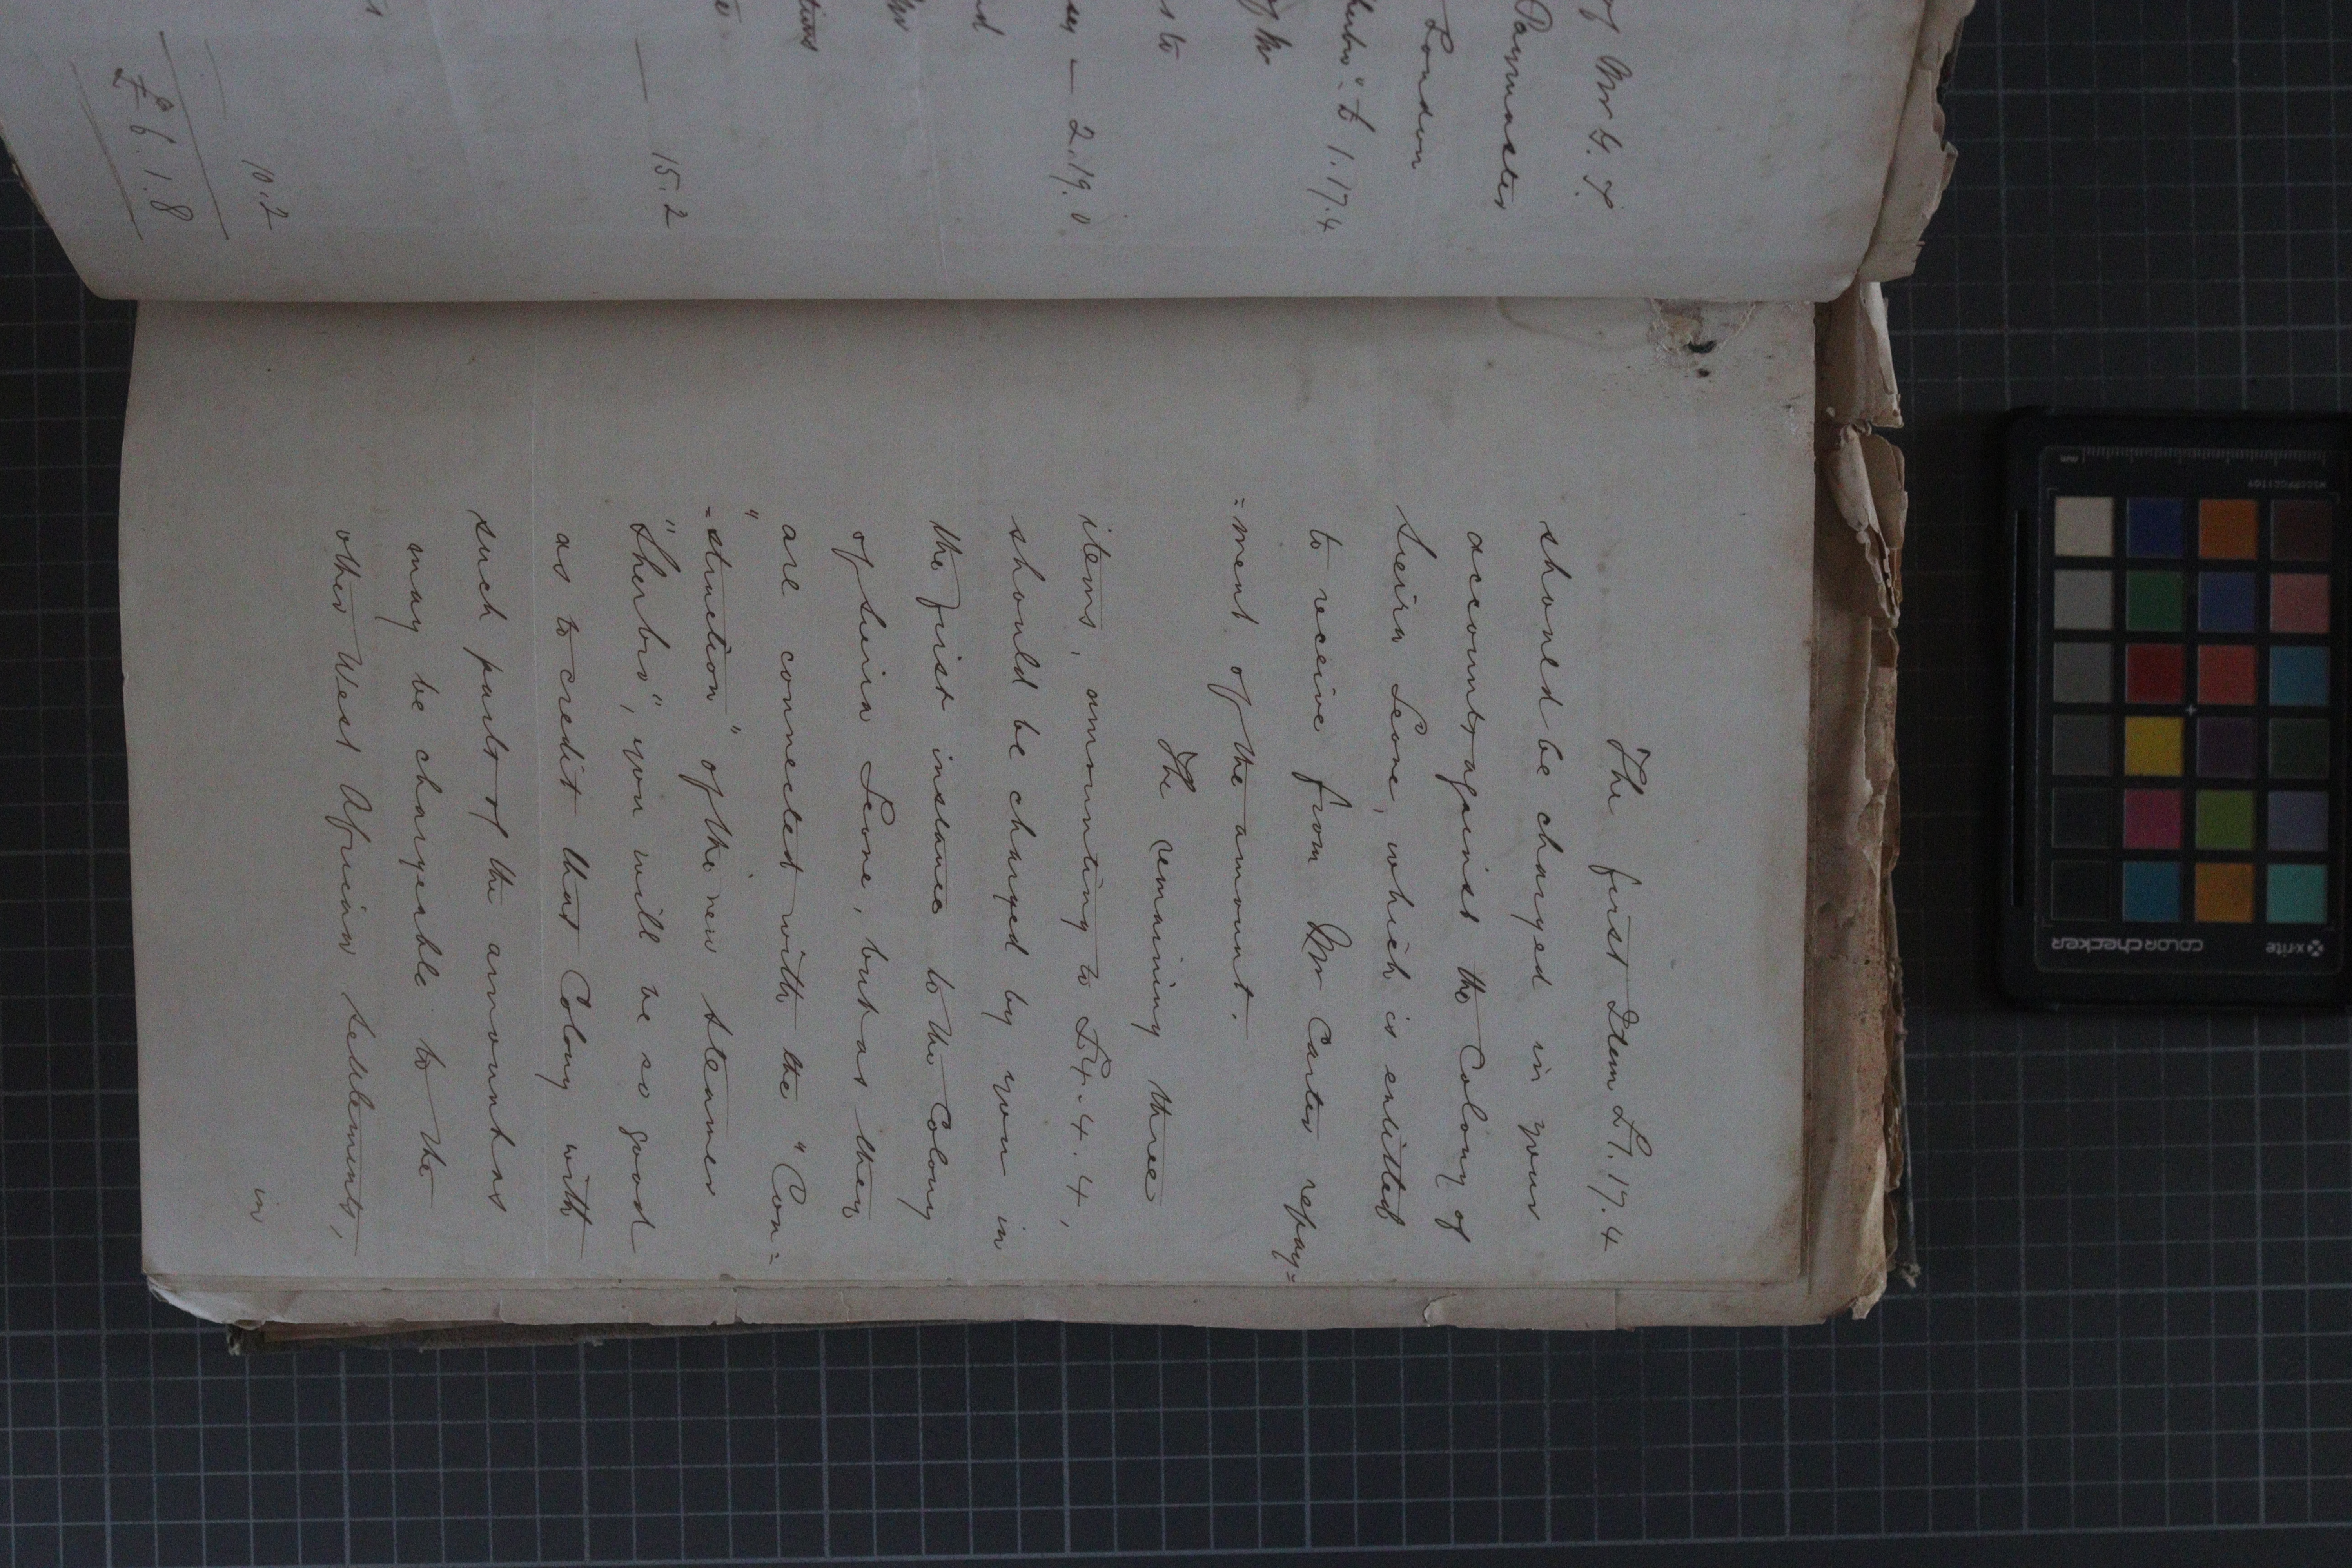 of Mr G. T.
Paymaster
London
Sherbro" £ 1.17.4
of the
s to
ey — 2.19.0
nd
the
tions
— 15.2
10.2
£ 6.1.8
The first Item £1.17.4
should be charged in your
accounts against the Colony of
Sierra Leone, which is entitled
to receive from Mr Carter repay=
=ment of the amount.
The remaining three
items, amounting to £4.4.4,
should be charged by you in
the first instance to the Colony
of Sierra Leone, but as they
are connected with the "Con=
"=struction" of the new steamer
"Sherbro", you will be so good
as to credit that Colony with
such part of the amount as
may be chargeable to the
other West African Settlements,
in